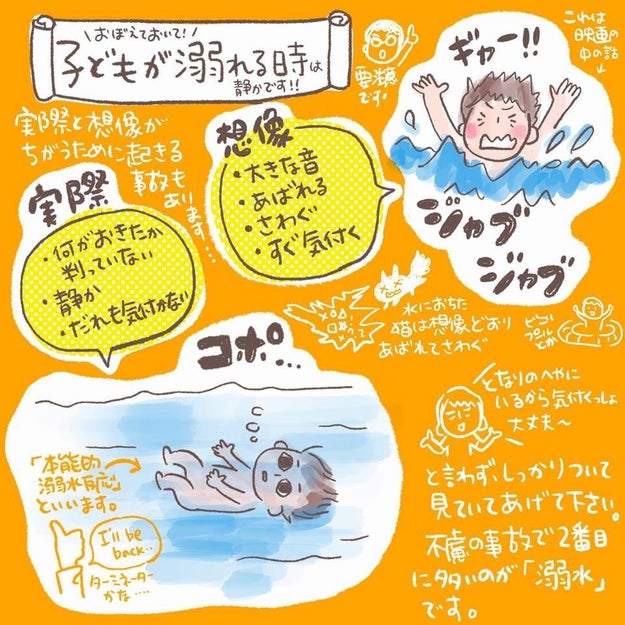 おぼえておいて!
子どもが溺れる時は
静かです!!
要注意
です
ギャー!!
これは
映画の
中の話
実際と想像が
ちがうために起きる
事故も
あります…
想像
・大きな音
・あばれる
・さわぐ
・すぐ気付く
ジャブ
ジャブ
実際
・何がおきたか
判っていない
・静か
・だれも気付かない
水におちた
猫は想像どおり
あばれてさわぐ
プール
とか
コポ…
「本能的
溺水反応」
といいます。
I'll be
back…
ターミネーター
かな…
となりのへやに
いるから気付くっしょ
大丈夫〜
と言わず、しっかりついて
見ていてあげて下さい。
不慮の事故で2番目
に多いのが「溺水」
です。